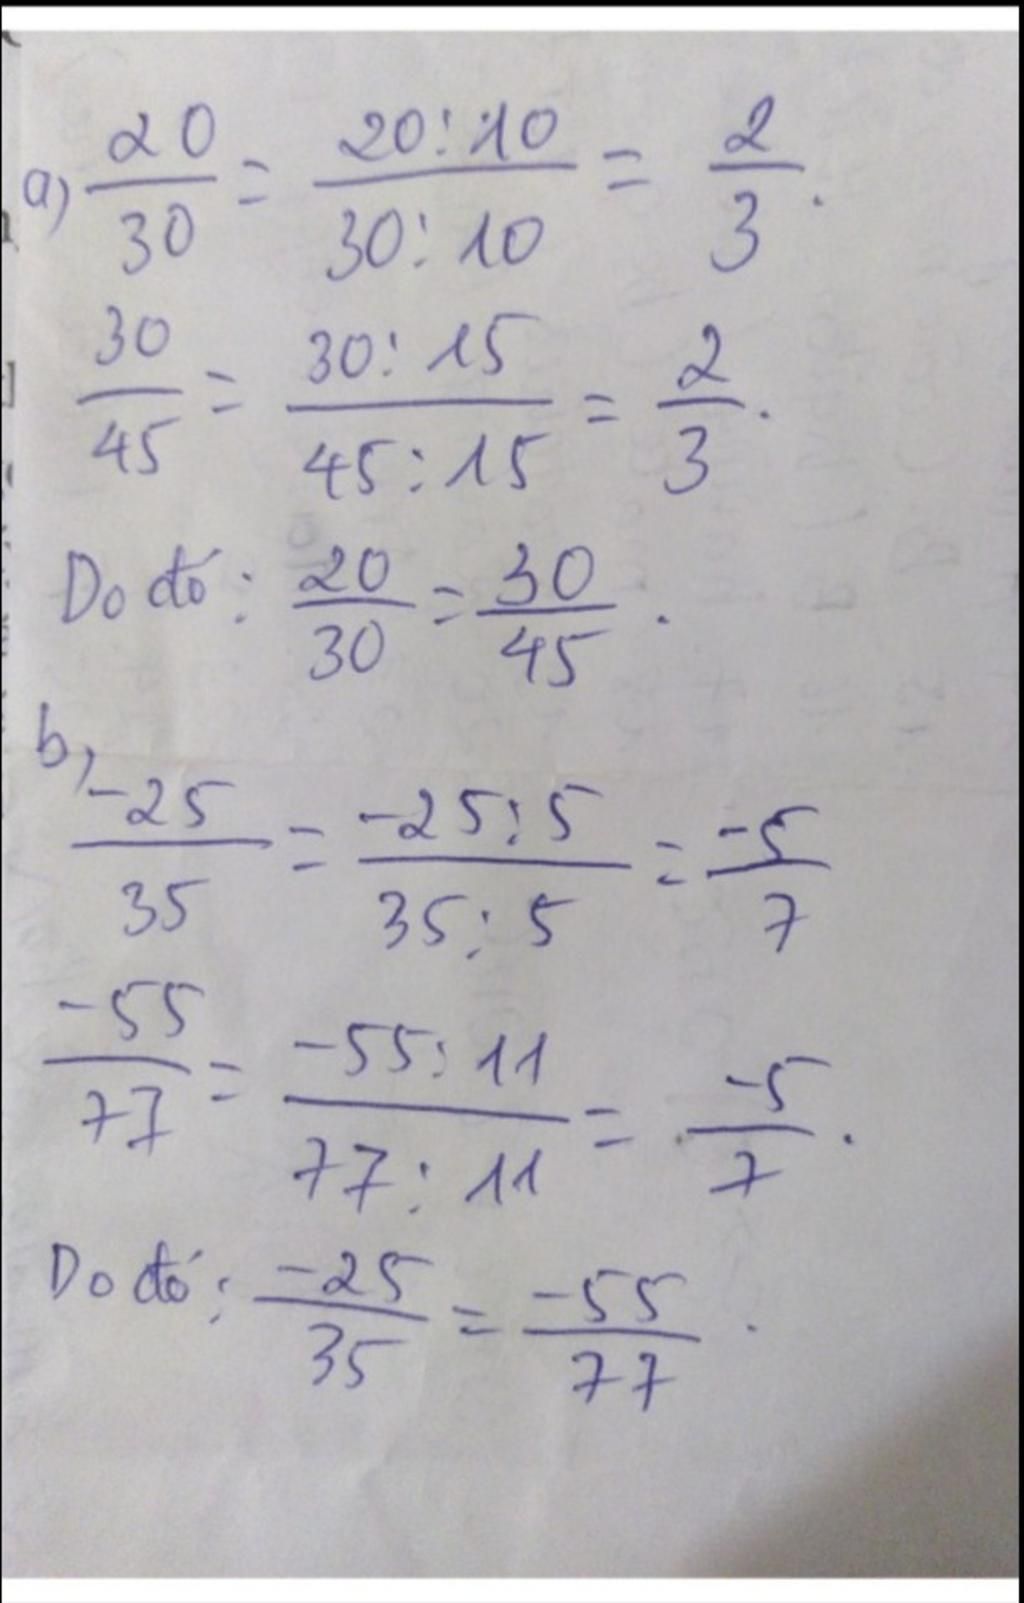 a) 20/30 = 20:10/30:10 = 2/3.
30/45 = 30:15/45:15 = 2/3.
Do đó: 20/30 = 30/45.
b,
-25/35 = -25:5/35:5 = -5/7
-55/77 = -55:11/77:11 = -5/7.
Do đó: -25/35 = -55/77.